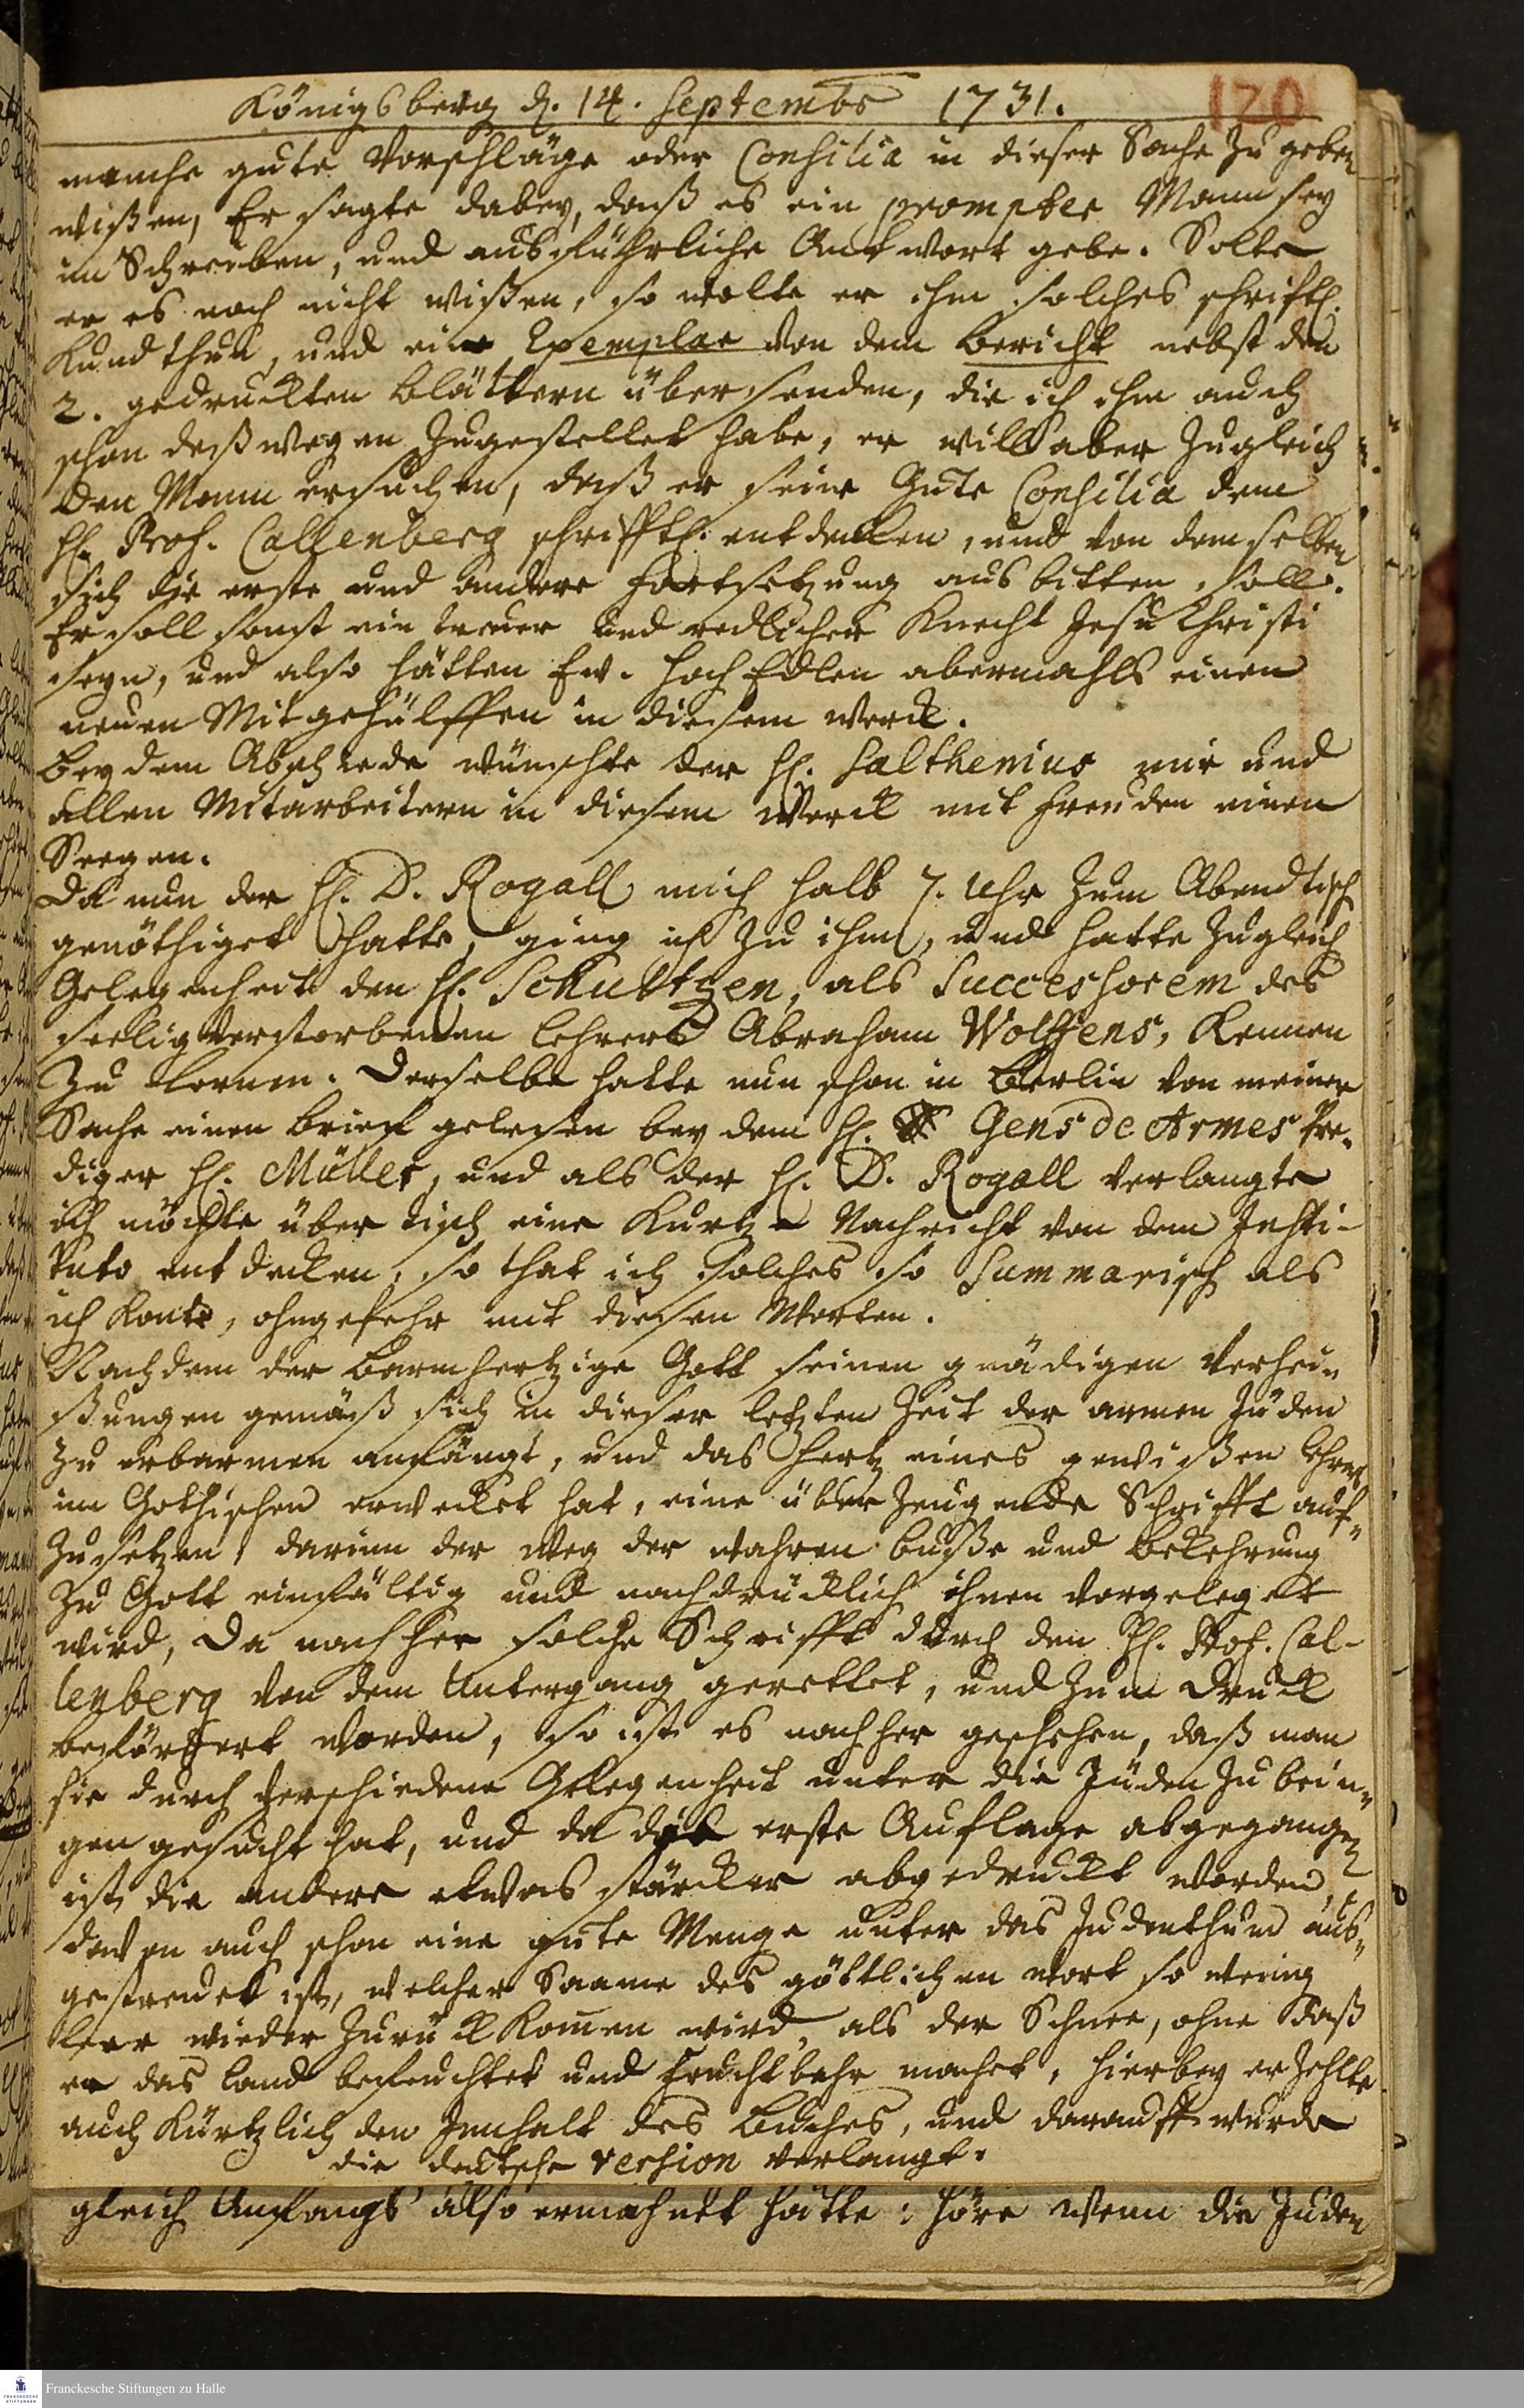 Königsberg d. 14. Septembr 1731.
120
manche gute Vorschläge oder Consilia in dieser Sache zu geben
wißen, Er sagte dabey, daß es ein prompter Mann sey
im Schreiben, und ausführliche Antwort gebe. Solte
er es noch nicht wißen, so wolte er ihm solches schriftl.
kund thun, und ein Exemplar von dem Bericht nebst den
2. gedruckten Blättern übersenden, die ich ihm auch
schon deßwegen zugestellet habe, er will aber zugleich
den Mann ersuchen, daß er seine gute Consilia dem
H. Prof. Callenberg schrifftl. entdecken, und von demselben
sich die erste und andere Fortsetzung ausbitten soll.
Er soll sonst ein treuer und redlicher Knecht Jesu Christi
seyn, und also hätten Ew. HochEdlen abermahls einen
neuen Mitgehülffen in diesem Werck.
Bey dem Abschiede wünschte der H. Salthenius mir und
allen Mitarbeitern in diesem Werck mit Freuden einen
Seegen.
Da nun der H. D. Rogall mich halb 7. Uhr zum Abendtisch
genöthiget hatte, ging ich zu ihm, und hatte zugleich
Gelegenheit den H. Schultzen, als Successorem des
seelig verstorbenen Lehrers Abraham Wolffens, kennen
zu lernen. Derselbe hatte nun schon in Berlin von meiner
Sache einen Brief gelesen bey dem H. Gens de Armes Pre-
diger H. Müller, und als der H. D. Rogall verlangte
ich möchte über Tisch eine kurtze Nachricht von dem Insti-
tuto entdecken, so that ich solches so Summarisch als
ich konte, ohngefehr mit diesen Worten.
Nachdem der barmhertzige Gott seinen gnädigen Verhei-
ßungen gemäß sich in dieser letzten Zeit der armen Juden
zu erbarmen anfängt, und das Hertz eines gewißen Lehrers
im Gothischen erwecket hat, eine überzeugende Schrifft auf-
zusetzen, darinn der Weg der wahren Buße und Bekehrung
zu Gott einfältig und nachdrücklich ihnen vorgeleget
wird, Da nachher solche Schrifft durch den H. Prof. Cal-
lenberg von dem Untergang gerettet, und zum Druck
befördert worden, so ist es nachher geschehen, daß man
sie durch verschiedene Gelegenheit unter die Juden zu brin-
gen gesucht hat, und da die erste Auflage abgegangen
ist, die andere etwas stärcker abgedruckt worden,
davon auch schon eine gute Menge unter das Judenthum aus-
gestreuet ist, welcher Saame des göttlichen Wort so wenig
leer wieder zurück kom̄en wird, als der Schnee, ohne daß
er das Land befeuchtet und fruchtbahr machet, hierbey erzehlte
auch kürtzlich den Innhalt des Buches, und darauff wurde
die deutsche version verlangt.
gleich Anfangs also ermahnet hätte: höre wenn die Juden
Franckesche Stiftungen zu Halle